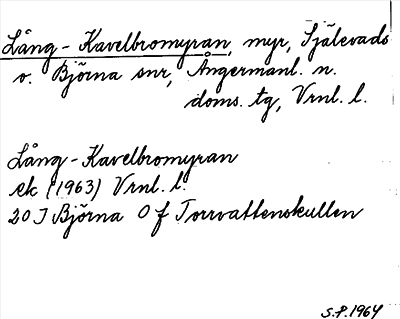 Lång-Kavelbromyran, myr, Själevads
o. Björna snr, Ångermanl. n.
doms. tg, Vrnl. l.
Lång-Kavelbromyran
ek (1963) Vrnl. l.
20 J Björna 0 f Torrvattenskullen
S.P. 1964